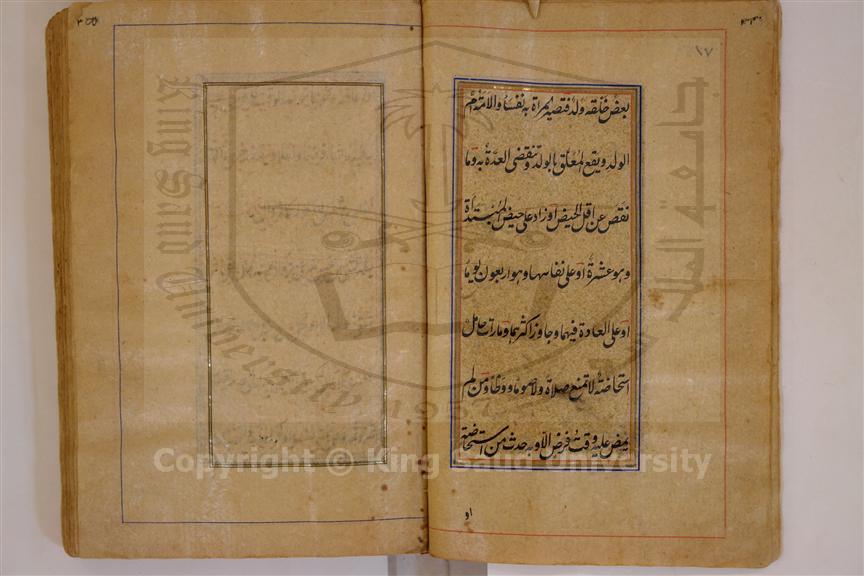 ١٧
بعض خلقه ولد فتصير المراة به نفساء والامة ام
الولد ويقع المعلق بالولد وتنقضى العدة به وما
نقص عن اقل الحيض او زاد على حيض المبتداة
وهو عشرة او على نفاسها وهو اربعون يوما
او على العادة فيهما وجاوز اكثرهما وما رات حامل
استحاضة لا تمنع صلاة ولا صوما ووطأ ومن لم
يمض عليه وقت فرض الا وبه حدث من استحاضة
او
King Saud University
1957
Copyright © King Saud University